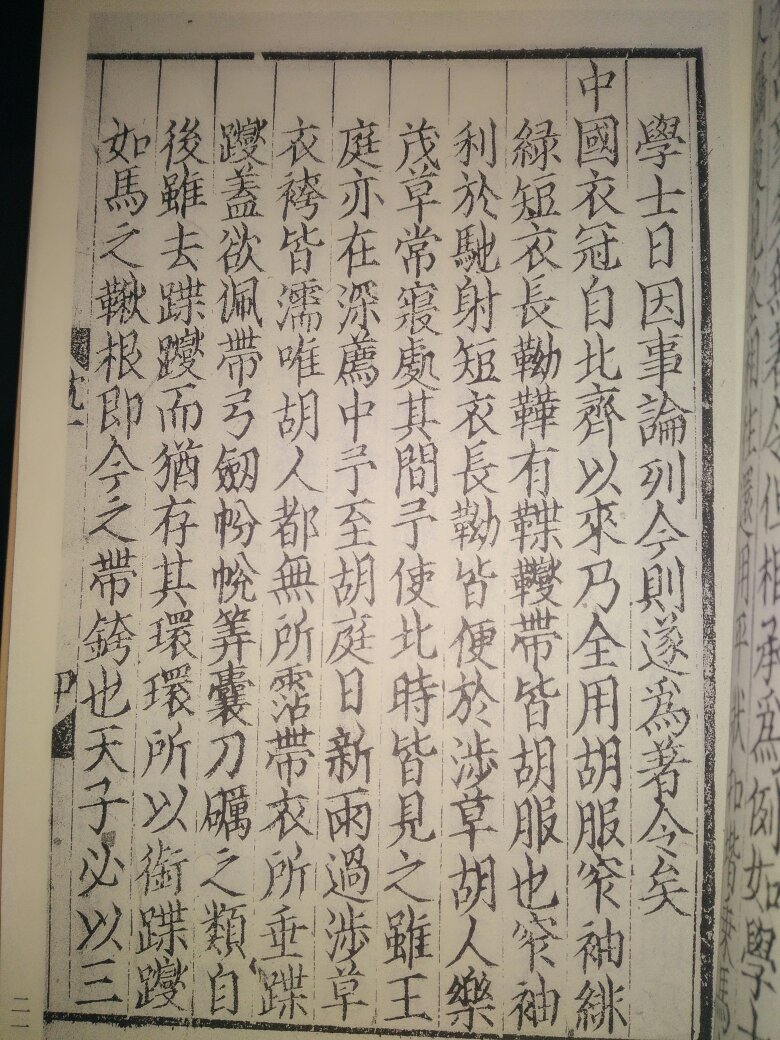 學士日因事論列今則遂爲著令矣
中國衣冠自北齊以來乃全用胡服窄袖緋
綠短衣長靿鞾有鞢韄帶皆胡服也窄袖
利於馳射短衣長靿皆便於涉草胡人樂
茂草常寢處其間予使北時皆見之雖王
庭亦在深薦中予至胡庭日新雨過涉草
衣袴皆濡唯胡人都無所霑帶衣所垂蹀
躞蓋欲佩帶弓劒帉帨筭囊刀礪之類自
後雖去蹀躞而猶存其環環所以銜蹀躞
如馬之鞦根即今之帶銙也天子必以三
二一